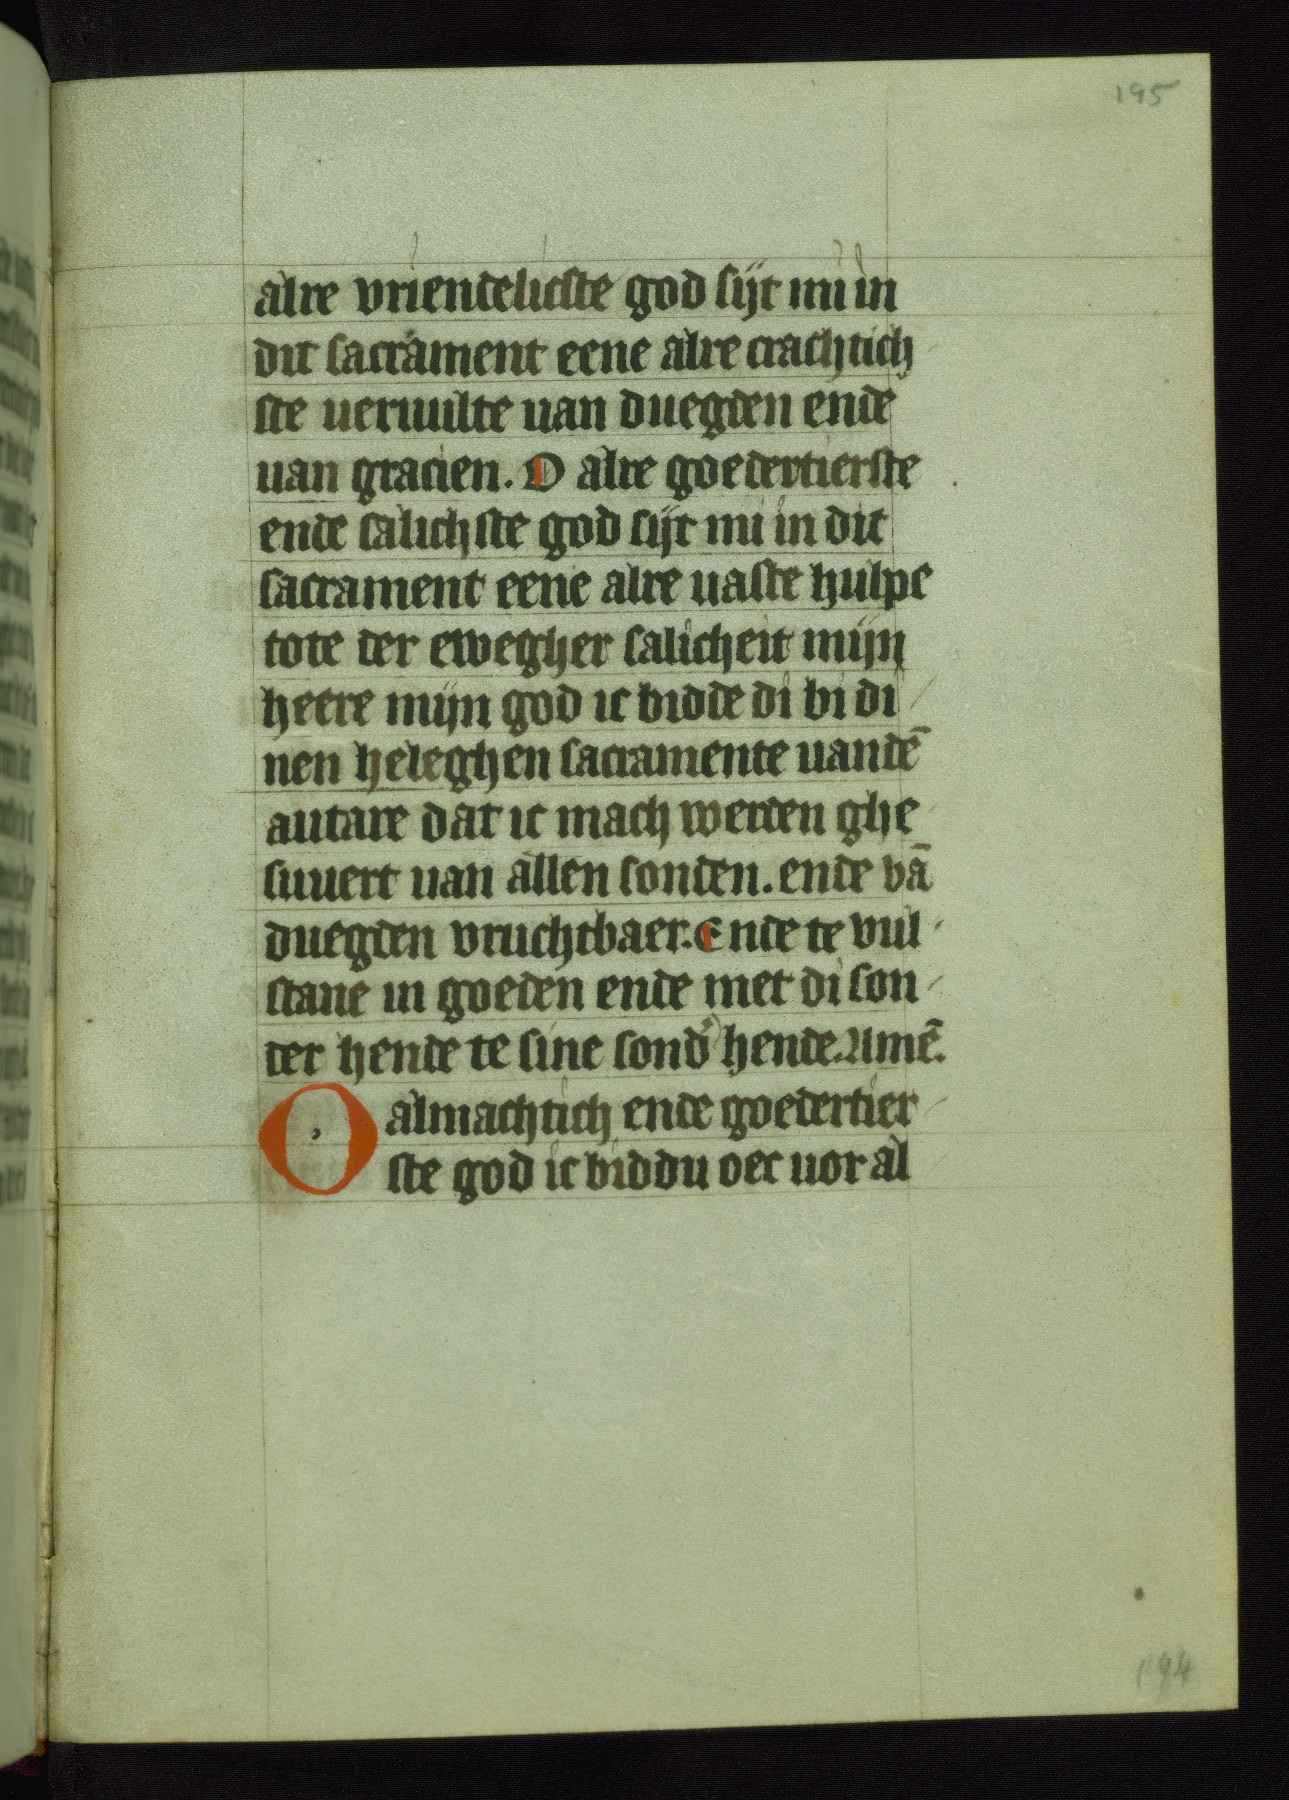 195
alre vriendelicste god sijt mi in
dit sacrament eene alre crachtich
ste vervulte van duegden ende
van gracien. O alre goedertierste
ende salichste god sijt mi in dit
sacrament eene alre vaste hulpe
tote der ewegher salicheit mijn
heere mijn god ic bidde di bi di
nen heleghen sacramente vandē
autare dat ic mach werden ghe
suvert van allen sonden. ende vā
duegden vruchtbaer. Ende te vul
stane in goeden ende met di son
der hende te sine sond' hende. Amē.
O almachtich ende goedertier
ste god ic biddu oec vor al
194